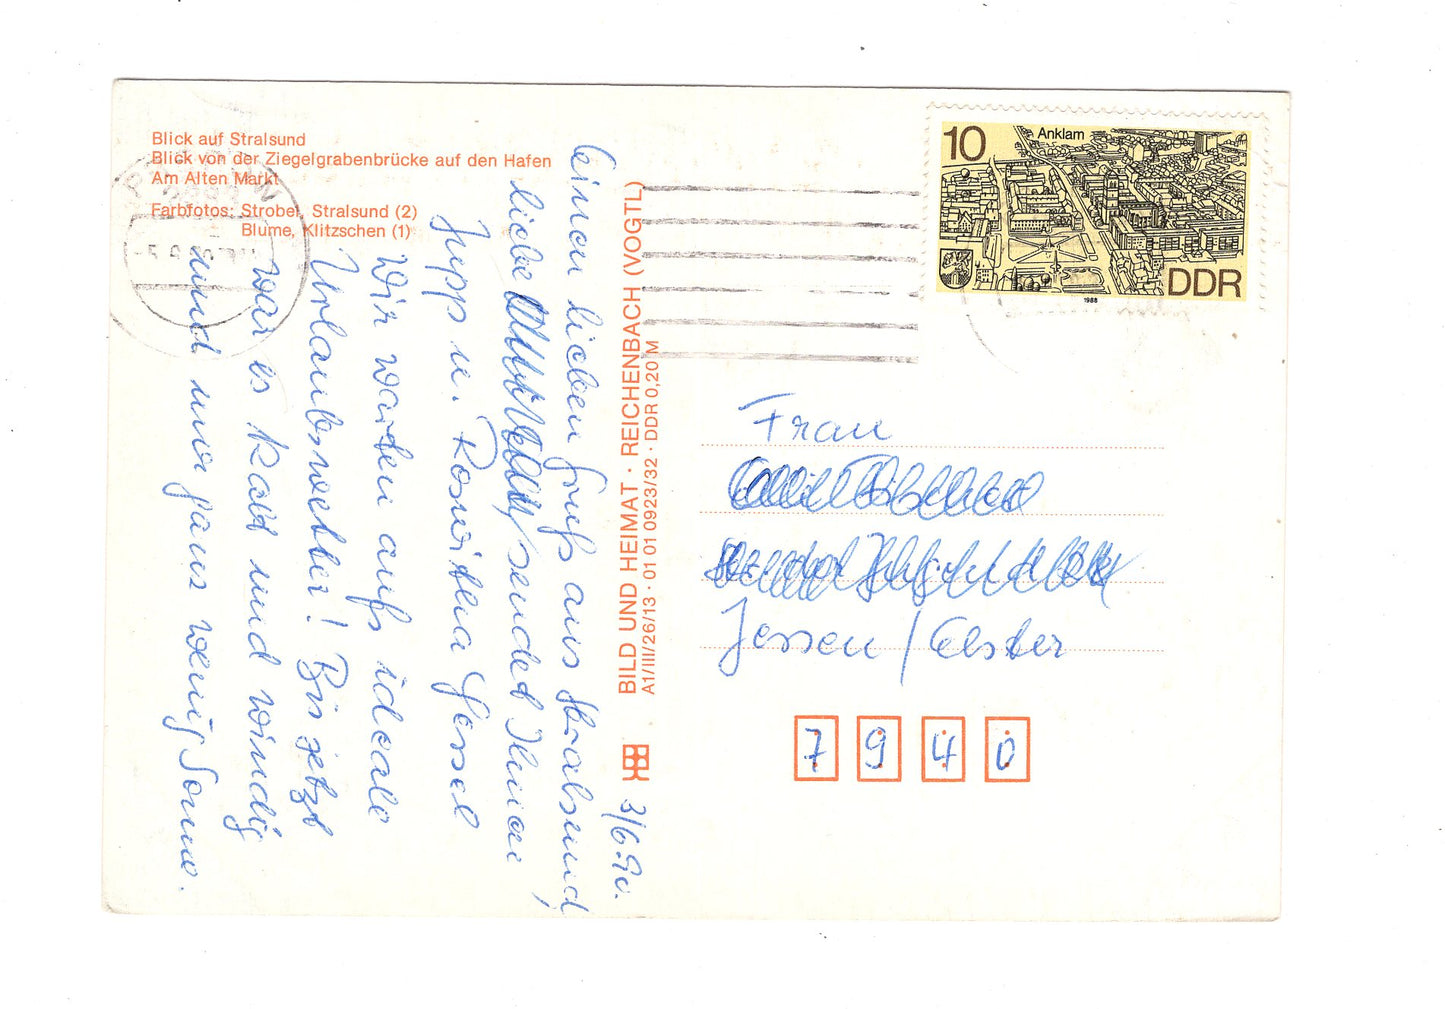 Blick auf Stralsund
Blick von der Ziegelgrabenbrücke auf den Hafen
Am Alten Markt
Farbfotos: Strobel, Stralsund (2)
Blume, Klitzschen (1)
3/6.90.
Einen lieben Gruß aus Stralsund,
liebe sendet Ihnen
Jupp u. Roswitha
Wir warten aufs ideale
Urlaubswetter! Bis jetzt
war es kalt und windig
und nur ganz wenig Sonne.
BILD UND HEIMAT · REICHENBACH (VOGTL)
A1/III/26/13 · 01 01 0923/32 · DDR 0,20 M
10
Anklam
DDR
1988
Frau
Jessen/Elster
7 9 4 0